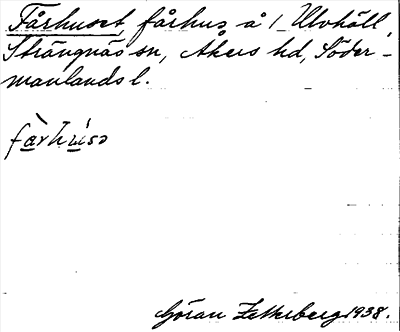 Fårhuset, fårhus å 1 Ulvhäll,
Strängnäs sn, Åkers hd, Söder-
manlands l.
fàrhúsə
Göran Zetterberg 1938.